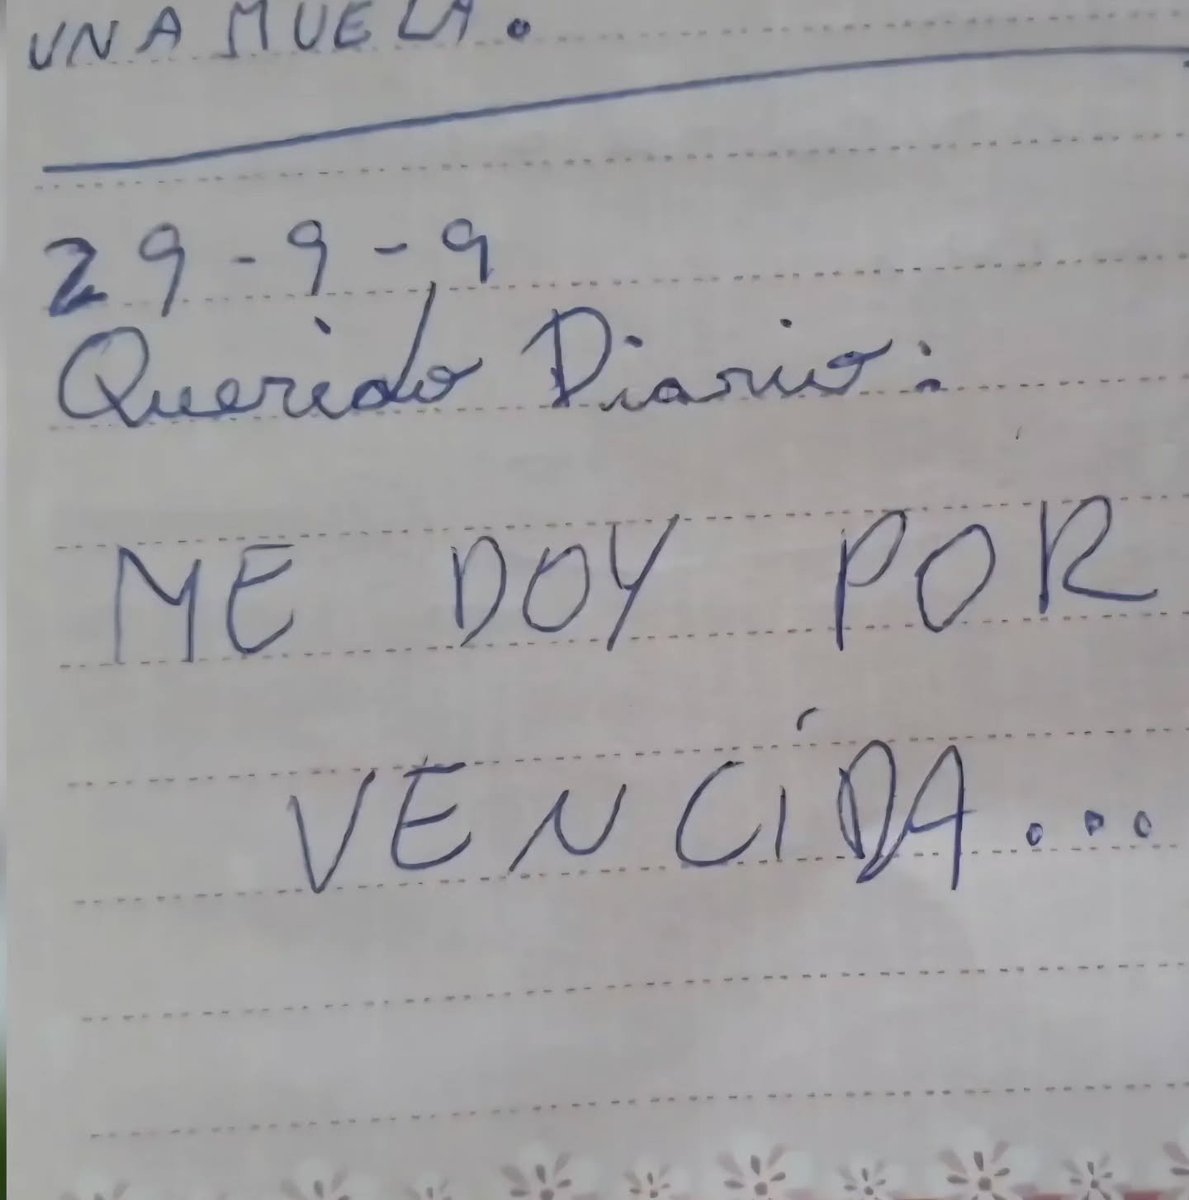 UNA MUELA.
29-9-9
Querido Diario:
ME DOY POR
VENCÍDA...